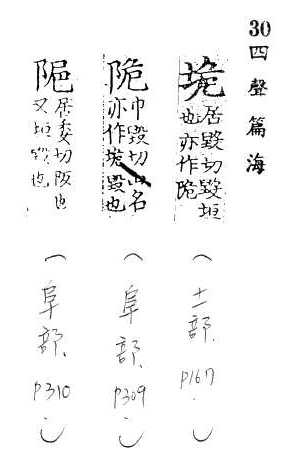 30 四聲篇海
垝 居毀切毀垣
也亦作陒
（土部、P167）
陒 巾毀切山名
亦作垝毀也
（阜部、P309）
居委切阪也
又垣毀也
（阜部、P310）